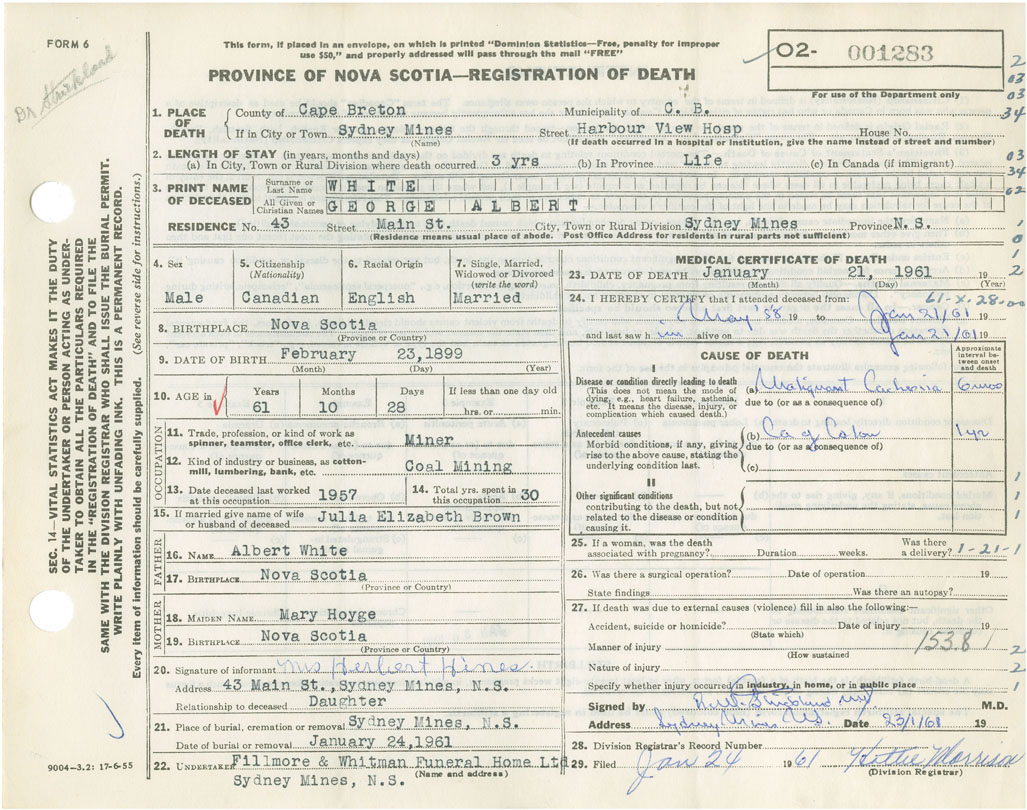 FORM 6
Dr Strickland
This form, if placed in an envelope, on which is printed "Dominion Statistics—Free, penalty for improper
use $50," and properly addressed will pass through the mail "FREE"
PROVINCE OF NOVA SCOTIA—REGISTRATION OF DEATH
02- 001283
For use of the Department only
2
03
03
34
03
34
02
1
0
1
2
SEC. 14—VITAL STATISTICS ACT MAKES IT THE DUTY
OF THE UNDERTAKER OR PERSON ACTING AS UNDER-
TAKER TO OBTAIN ALL THE PARTICULARS REQUIRED
IN THE "REGISTRATION OF DEATH" AND TO FILE THE
SAME WITH THE DIVISION REGISTRAR WHO SHALL ISSUE THE BURIAL PERMIT.
WRITE PLAINLY WITH UNFADING INK. THIS IS A PERMANENT RECORD.
Every item of information should be carefully supplied. (See reverse side for instructions.)
1. PLACE OF DEATH County of Cape Breton Municipality of C. B.
If in City or Town Sydney Mines Street Harbour View Hosp House No.
(Name) (If death occurred in a hospital or institution, give the name instead of street and number)
2. LENGTH OF STAY (in years, months and days)
(a) In City, Town or Rural Division where death occurred 3 yrs (b) In Province Life (c) In Canada (if immigrant)
3. PRINT NAME OF DECEASED Surname or Last Name WHITE
All Given or Christian Names GEORGE ALBERT
RESIDENCE No. 43 Street Main St. City, Town or Rural Division Sydney Mines Province N.S.
(Residence means usual place of abode. Post Office Address for residents in rural parts not sufficient)
4. Sex
Male
5. Citizenship
(Nationality)
Canadian
6. Racial Origin
English
7. Single, Married,
Widowed or Divorced
(write the word)
Married
8. BIRTHPLACE Nova Scotia
(Province or Country)
9. DATE OF BIRTH February 23,1899
(Month) (Day) (Year)
10. AGE in Years Months Days If less than one day old
61 10 28 hrs. or min.
OCCUPATION
11. Trade, profession, or kind of work as
spinner, teamster, office clerk, etc. Miner
12. Kind of industry or business, as cotton-
mill, lumbering, bank, etc. Coal Mining
13. Date deceased last worked
at this occupation 1957
14. Total yrs. spent in
this occupation 30
15. If married give name of wife
or husband of deceased Julia Elizabeth Brown
FATHER
16. NAME Albert White
17. BIRTHPLACE Nova Scotia
(Province or Country)
MOTHER
18. MAIDEN NAME Mary Hoyge
19. BIRTHPLACE Nova Scotia
(Province or Country)
20. Signature of informant Mrs Herbert Hines
Address 43 Main St., Sydney Mines, N.S.
Relationship to deceased Daughter
21. Place of burial, cremation or removal Sydney Mines, N.S.
Date of burial or removal January 24,1961
22. UNDERTAKER Fillmore & Whitman Funeral Home Ltd
Sydney Mines, N.S. (Name and address)
9004-3.2: 17-6-55
MEDICAL CERTIFICATE OF DEATH
23. DATE OF DEATH January 21, 1961 19
(Month) (Day) (Year)
61-X-28-00
24. I HEREBY CERTIFY that I attended deceased from:
May '58 19 to Jan 21/61 19
and last saw h im alive on Jan 21/61 19
CAUSE OF DEATH
Approximate
interval be-
tween onset
and death
I
Disease or condition directly leading to death
(This does not mean the mode of
dying, e.g., heart failure, asthenia,
etc. It means the disease, injury, or
complication which caused death.)
(a) Malignant Cachexia 6 mos
due to (or as a consequence of)
Antecedent causes
Morbid conditions, if any, giving
rise to the above cause, stating the
underlying condition last.
(b) Ca of Colon 1 yr
due to (or as a consequence of)
(c)
II
Other significant conditions
contributing to the death, but not
related to the disease or condition
causing it.
1
1
1
25. If a woman, was the death
associated with pregnancy? Duration weeks. Was there
a delivery? 1-21-1
26. Was there a surgical operation? Date of operation 19
State findings Was there an autopsy?
27. If death was due to external causes (violence) fill in also the following:—
Accident, suicide or homicide? Date of injury 19
(State which)
Manner of injury 153.8 1
(How sustained
2
Nature of injury 2
Specify whether injury occurred in industry, in home, or in public place 1
Signed by R.W. Strickland MD M.D.
Address Sydney Mines NS. Date 23/1/61 19
28. Division Registrar's Record Number
29. Filed Jan 24 1961 Kettie Morrison
(Division Registrar)